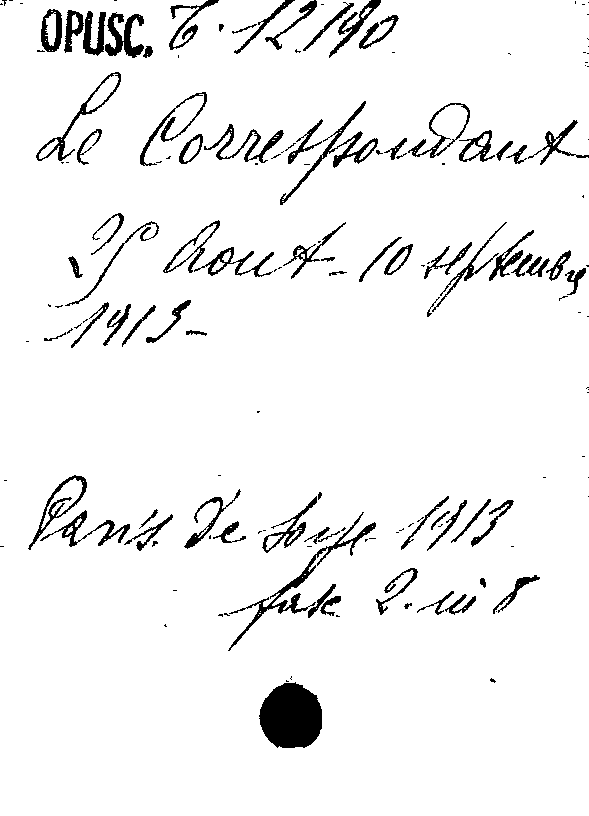 OPUSC. C. 12190
Le Correspondant
25 Aout - 10 septembre
1913 -
Paris. De Soye 1913
fasc 2. in 8